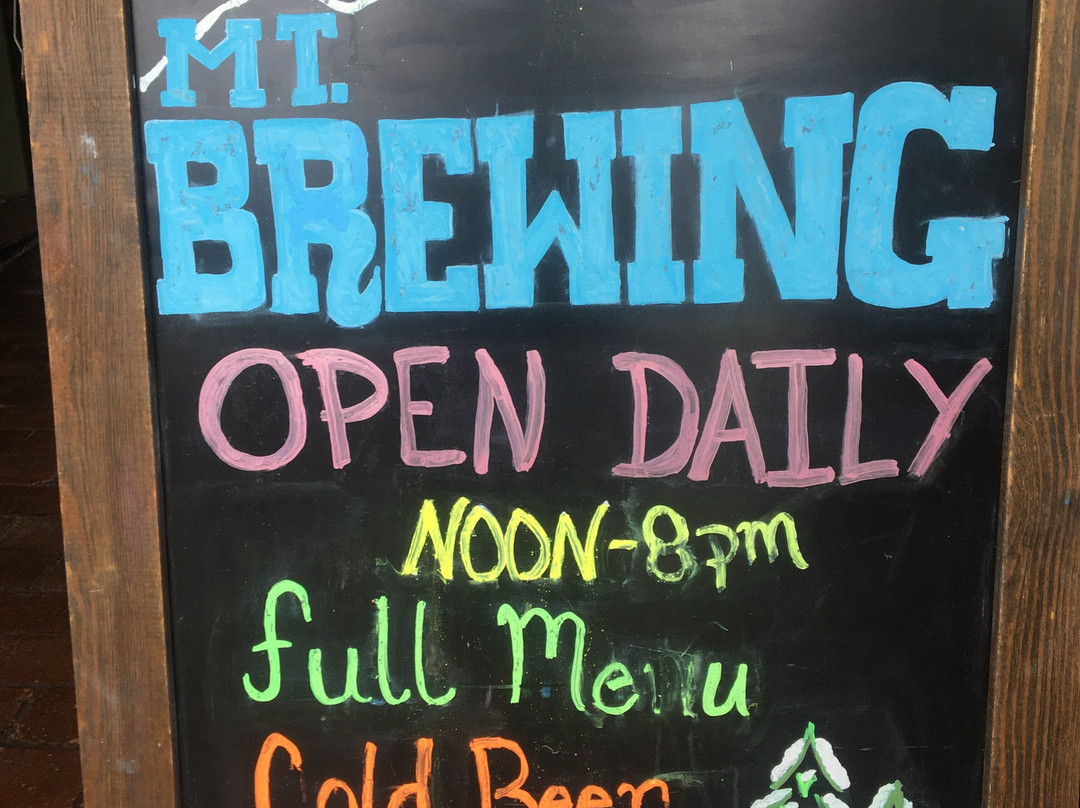 MT.
BREWING
OPEN DAILY
NOON-8pm
full Menu
Cold Beer